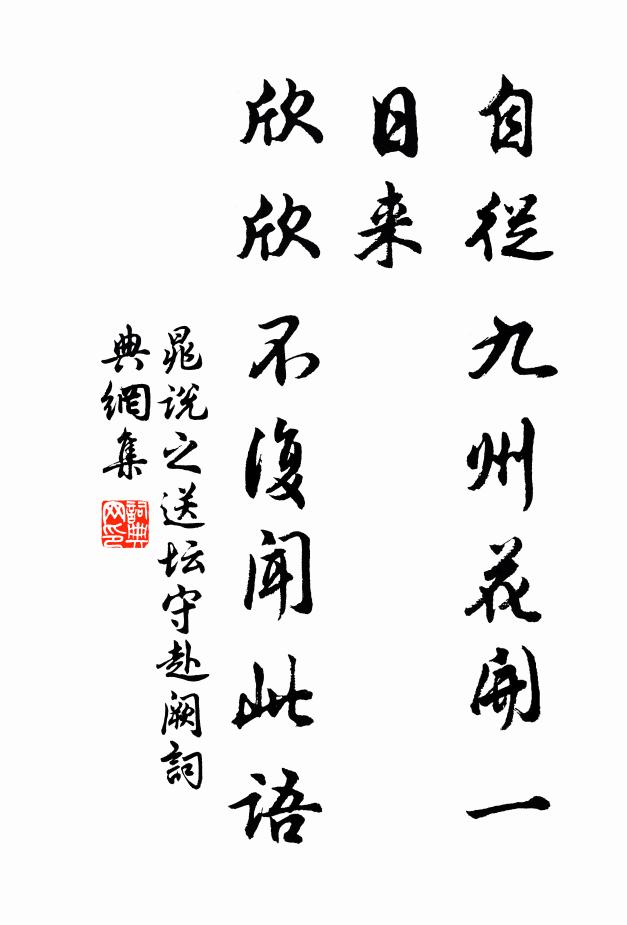 自從九州花開一
日来
欣欣不復聞此語
晁说之送坛守赴阙詞
典網集
詞典网印